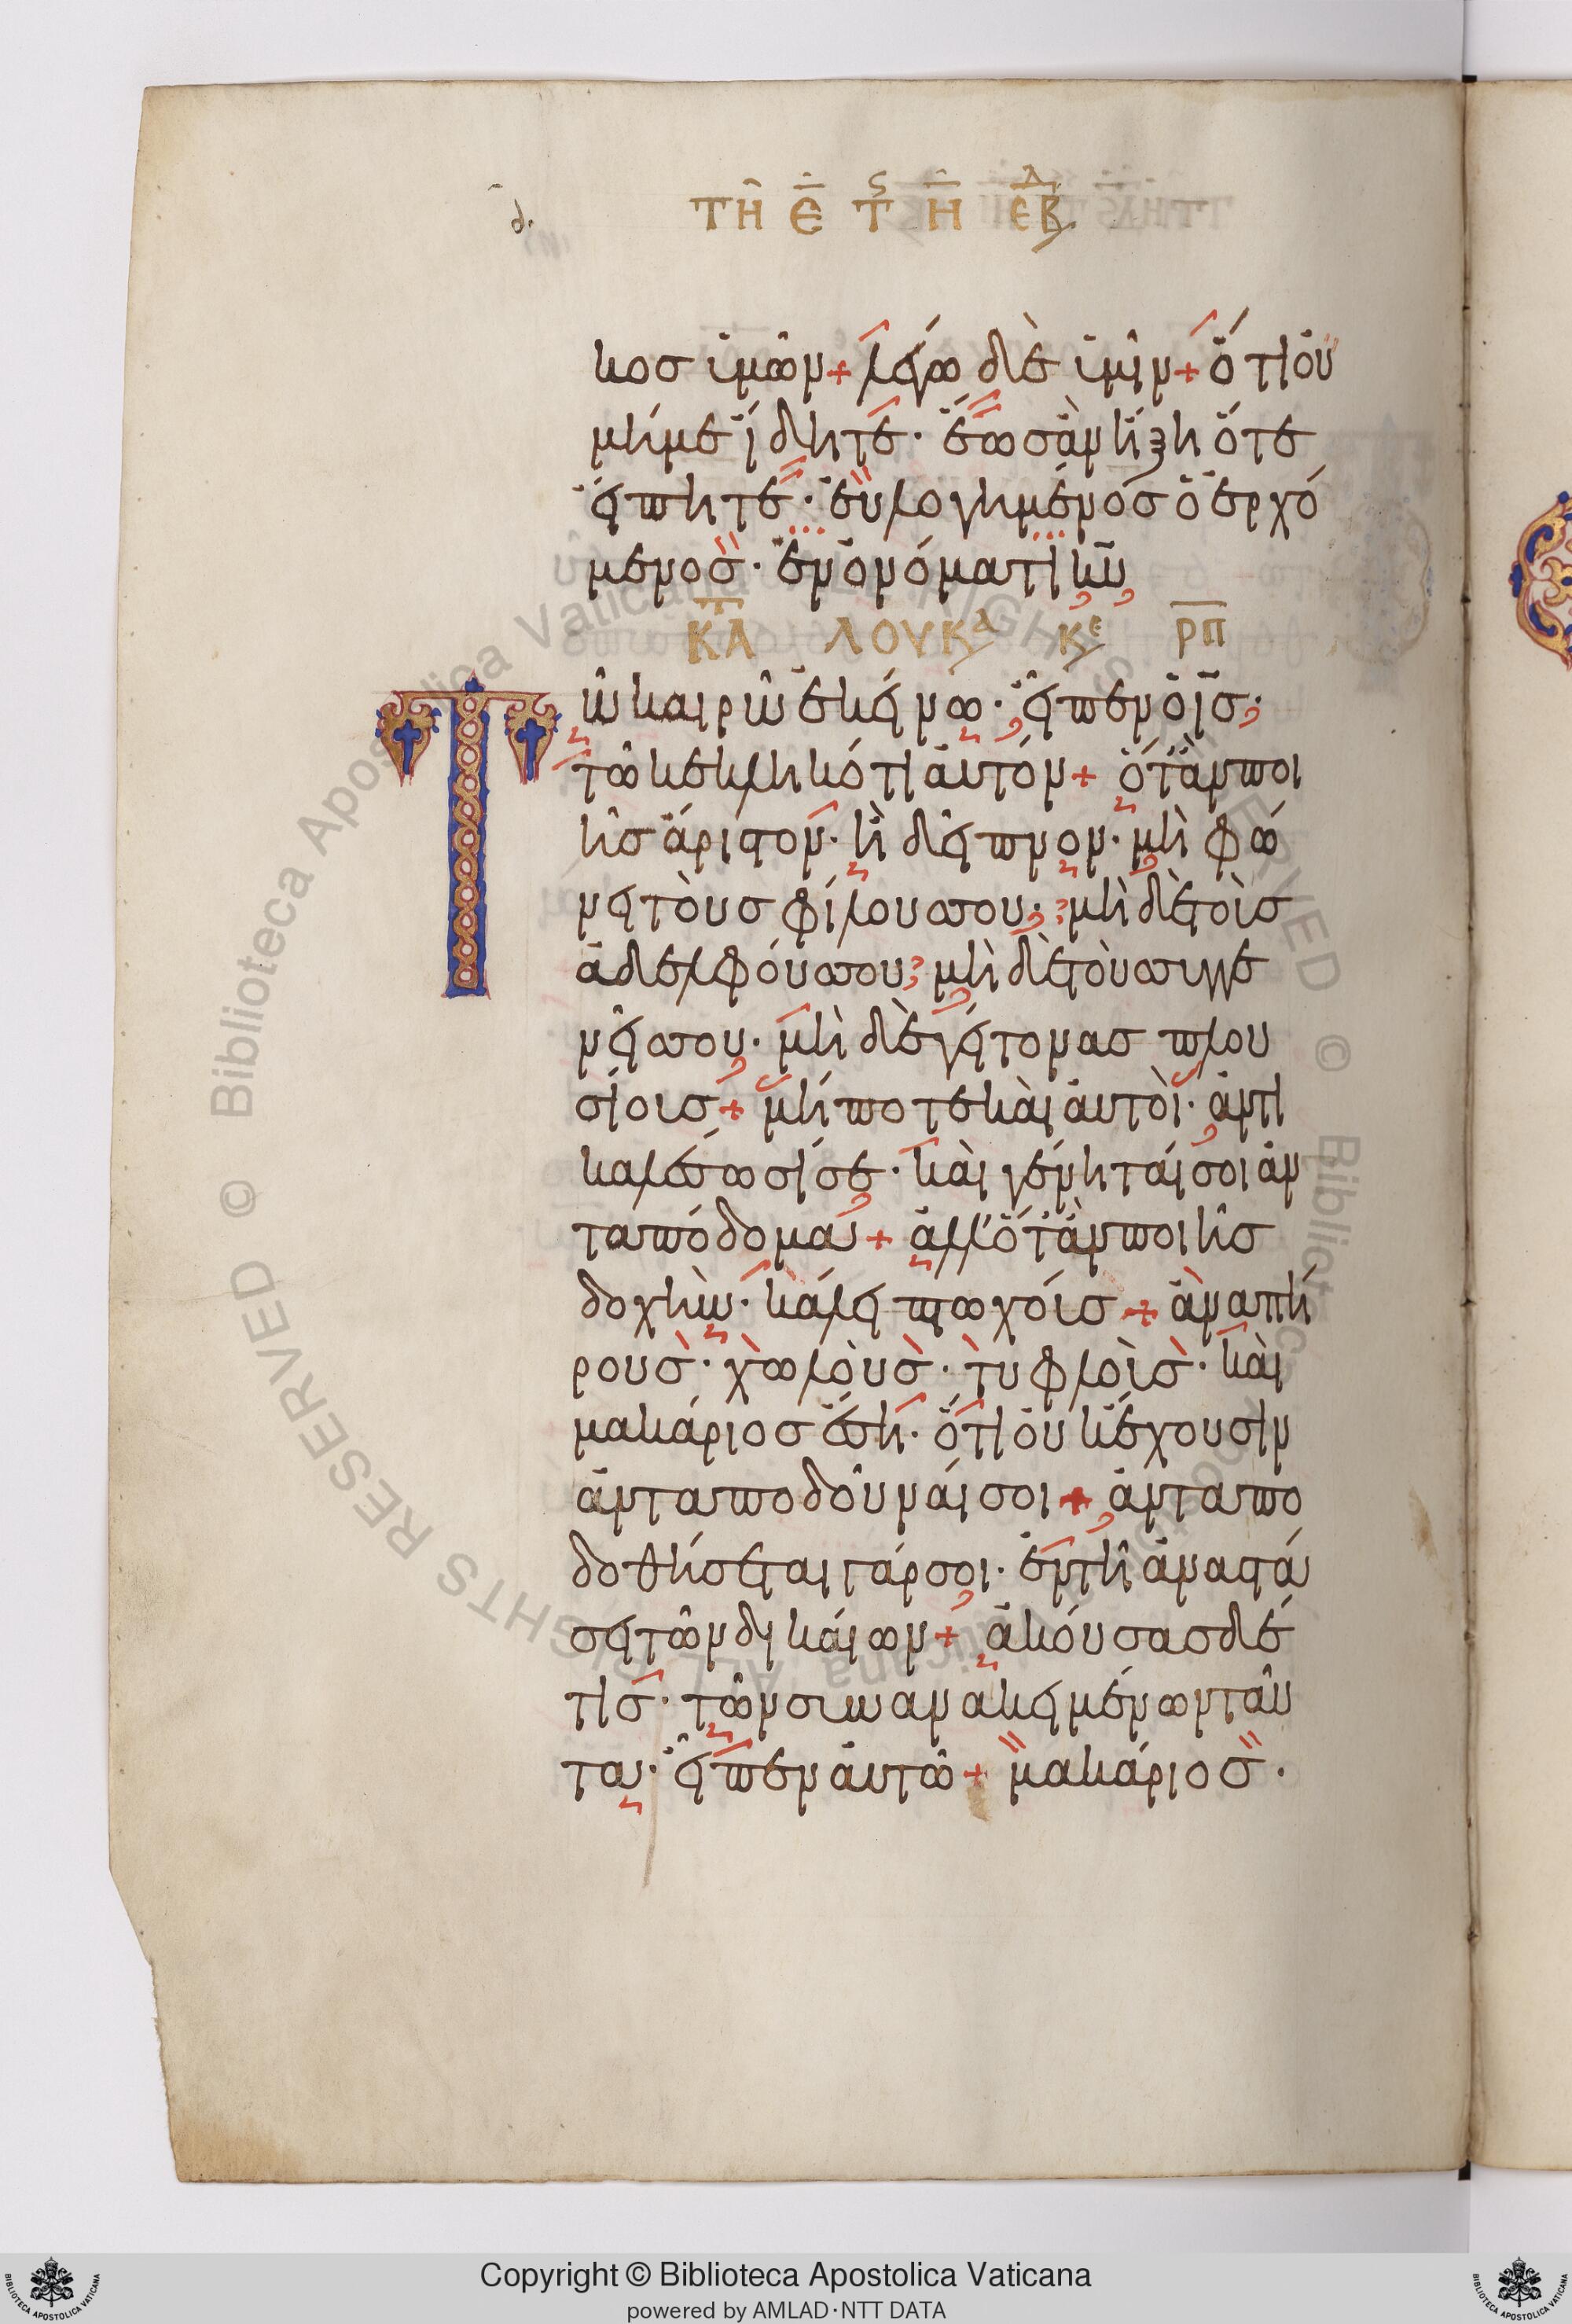 δ.
ΤΗ Ε Τ̅ς Η ΕΒΔ
κος ὑμῶν + λέγω δὲ ὑμῖν + ὅτι οὐ
μή με ἴδητε · ἕως ἂν ἥξη ὅτε
εἴπητε · εὐλογημένος ὁ ἐρχό
μενος · ἐν ὀνόματι κυ
ΛΟΥΚΑ ΚΕ ΡΠ
Τῶ καιρῶ ἐκείνω · εἶπεν ὁ ις
τῶ κεκληκότι αὐτόν + ὅτ' ἂν ποι
ῆς ἄριστον · ἢ δεῖπνον · μὴ φώ
νει τοὺς φίλους σου · μὴ δὲ τοὺς
ἀδελφούς σου · μὴ δὲ τοὺς συγγε
νεῖς σου · μὴ δὲ γείτονας πλου
σίους + μήποτε καὶ αὐτοὶ · ἀντι
καλέσωσί σε · καὶ γένηταί σοι ἀν
ταπόδομα + ἀλλ' ὅτ' ἂν ποιῆς
δοχὴν · κάλει πτωχούς + ἀναπή
ρους · χωλοὺς · τυφλοὺς · καὶ
μακάριος ἔση · ὅτι οὐκ ἔχουσιν
ἀνταποδοῦναί σοι + ἀνταπο
δοθήσεται γάρ σοι · ἐν τῆ ἀναστά
σει τῶν δικαίων + ἀκούσας δέ
τις · τῶν συνανακειμένων ταῦ
τα · εἶπεν αὐτῶ + μακάριος ·
Copyright © Biblioteca Apostolica Vaticana
powered by AMLAD·NTT DATA